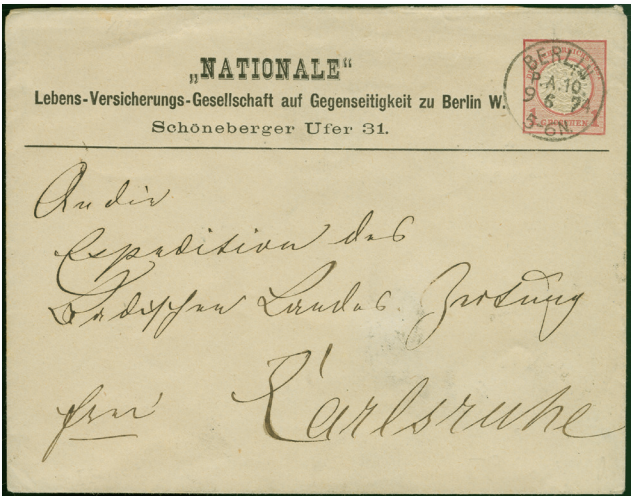 „NATIONALE“
Lebens-Versicherungs-Gesellschaft auf Gegenseitigkeit zu Berlin W.
Schöneberger Ufer 31.
BERLIN
P.A.10.
9 6 74
5-6N.
1 GROSCHEN 1
An die
Expedition der
Badischen Landes Zeitung
frei
Karlsruhe